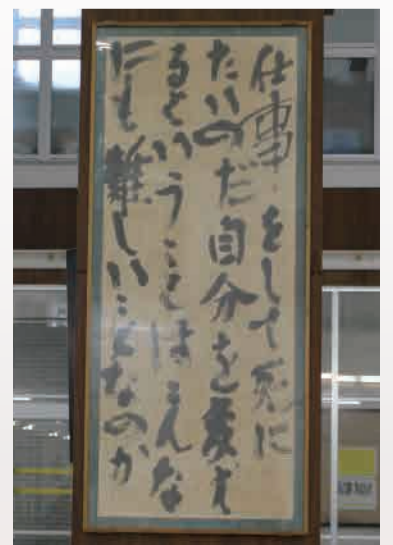 仕事をして死に
たいのだ自分を変え
るということはこんな
にも難しいことなのか